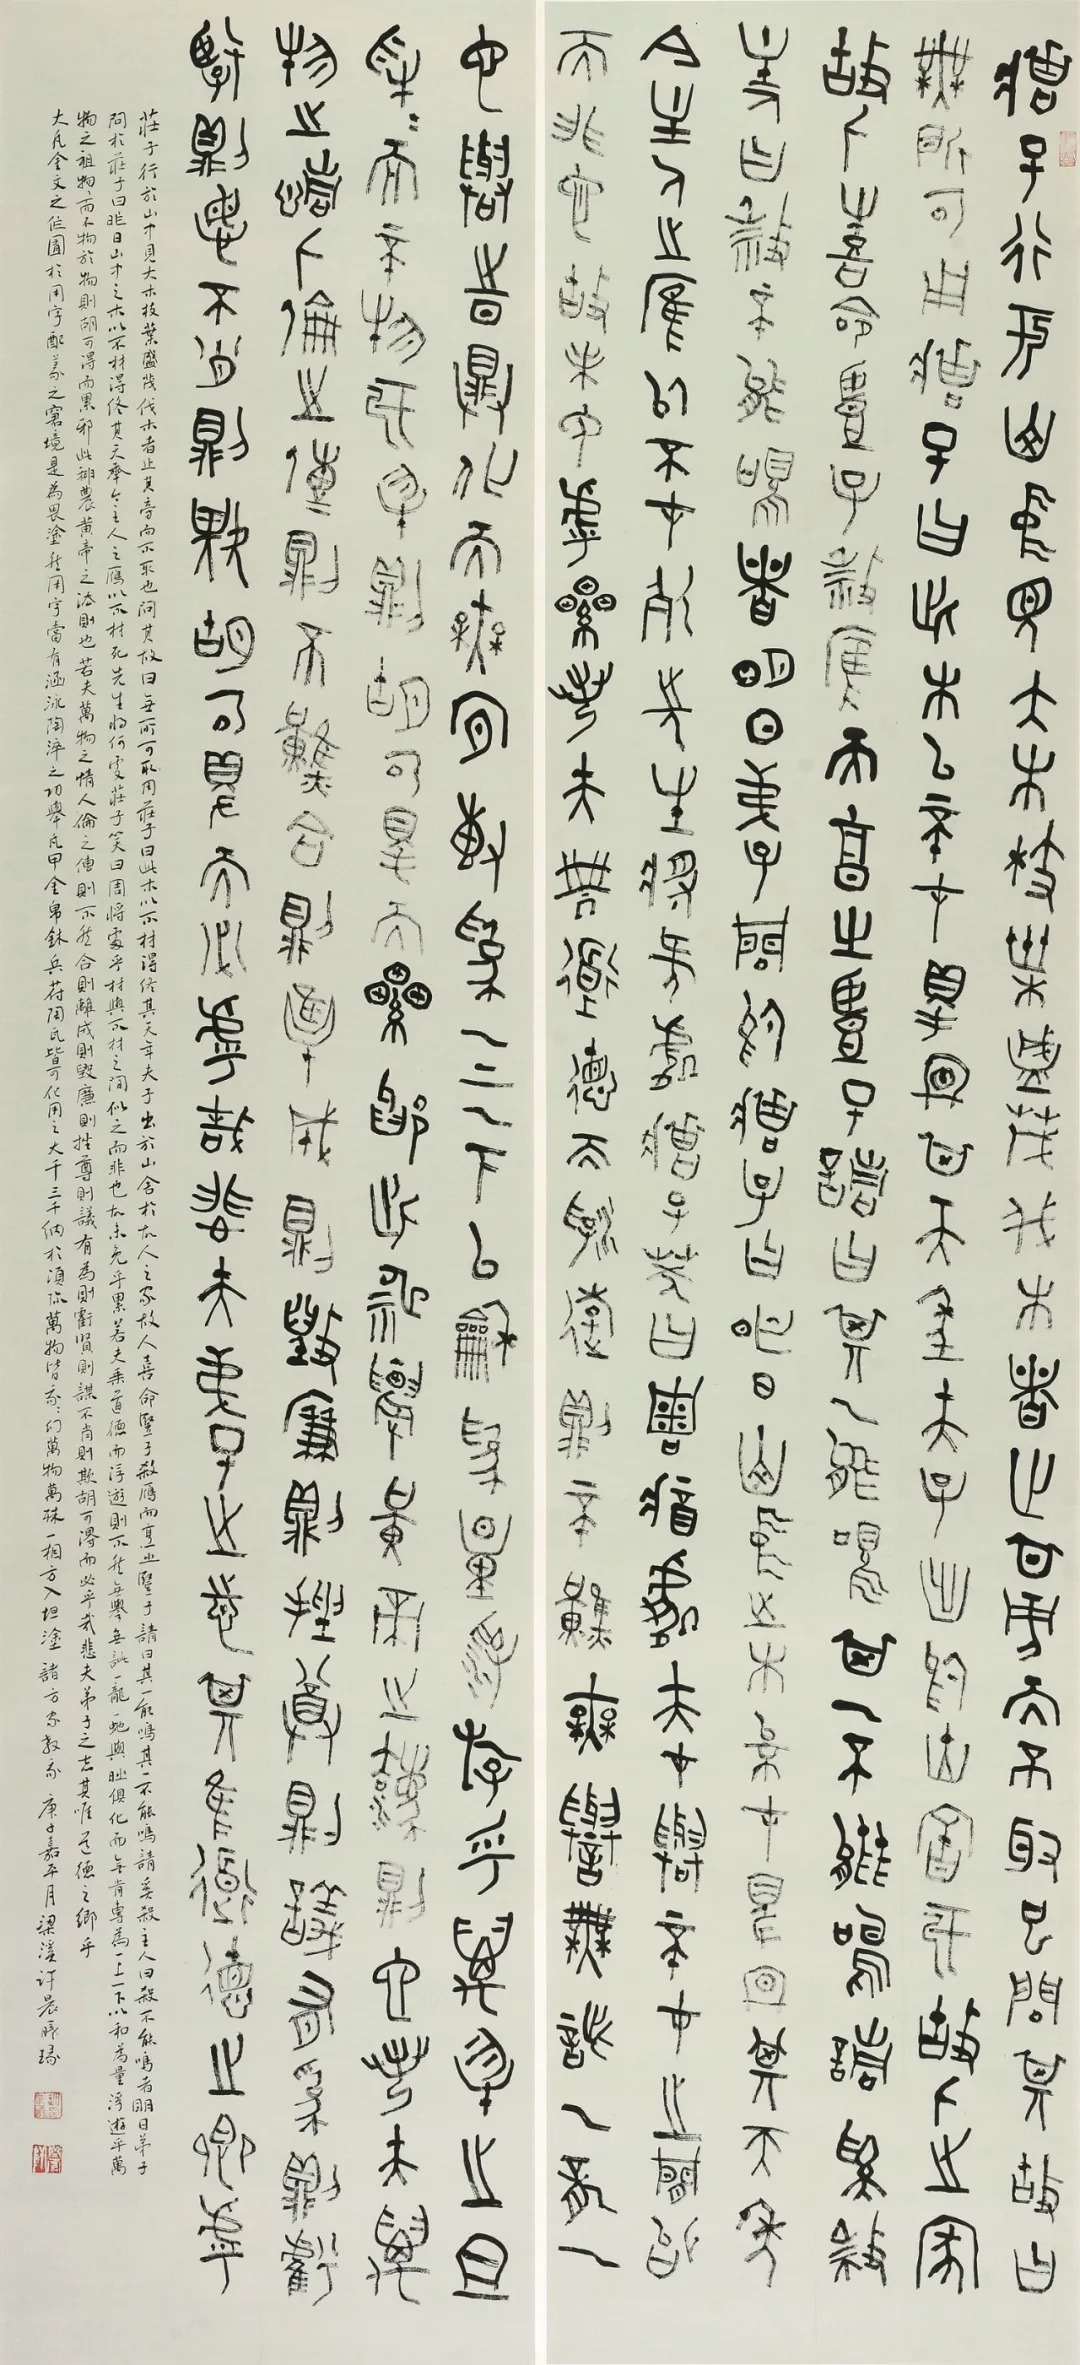 莊子行於山中見大木枝葉盛茂伐木者止其旁而不取也問其故曰
無所可用莊子曰此木以不材得終其天年夫子出於山舍於故人之家
故人喜命豎子殺雁而烹之豎子請曰其一能鳴其一不能鳴請奚殺
主曰殺不能鳴者明日弟子問於莊子曰昨日山中之木以不材得終其天年
今主人之雁以不材死先生將何處莊子笑曰周將處夫材與不材之間似
而非也故未免乎累若夫乘道德而浮遊則不然無譽無訾一龍一
也與時俱化而無肯專為一上一下以和為量浮遊乎萬物之祖
物物而不物於物則胡可得而累邪此神農黃帝之法則也若夫萬
物之情人倫之傳則不然合則離成則毀廉則挫尊則議有為則虧
賢則謀不肖則欺胡可得而必乎哉悲夫弟子之志其唯道德之鄉乎
莊子行於山中見大木枝葉盛茂伐木者止其旁而不取也問其故曰無所可取用莊子曰此木以不材得終其天年夫子出於山舍於故人之家故人喜命豎子殺雁而烹之豎子請曰其一能鳴其一不能鳴請奚殺主人曰殺不能鳴者明日弟子
問於莊子曰昨日山中之木以不材得終其天年今主人之雁以不材死先生將何處莊子笑曰周將處乎材與不材之間似之而非也故未免乎累若夫乘道德而浮遊則不然無譽無訾一龍一蛇與時俱化而無肯專為一上一下以和為量浮遊乎萬
物之祖物物而不物於物則胡可得而累邪此神農黃帝之法則也若夫萬物之情人倫之傳則不然合則離成則毀廉則挫尊則議有為則虧賢則謀不肖則欺胡可得而必乎哉悲夫弟子之志其唯道德之鄉乎
大凡金文之作囿於用字配篆之窘境是為畏塗然用字當有涵泳陶淬之功舉凡甲金帛鉥兵符陶瓦皆可化用之大千三千納於須彌萬物皆為芻狗萬物萬殊一相方入坦塗諸方家教示 庚子嘉平月梁溪許晨